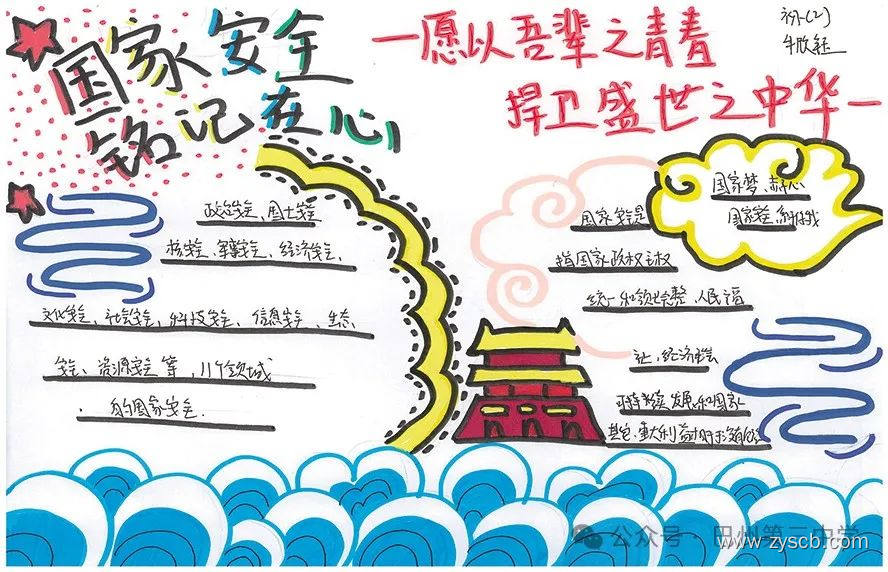 国家安全
铭记在心
一愿以吾辈之青春
捍卫盛世之中华一
初一(2)
政治安全、国土安全
核安全、军事安全、经济安全、
文化安全、社会安全、科技安全、信息安全、生态
安全、资源安全等，11个领域
的国家安全.
国家安全是
指国家政权主权
统一和领土完整、人民福
祉、经济社会
可持续发展和国家
其它重大利益相对于没有危
国家梦、赤子心
国家安全
公众号·
www.zyscb.com